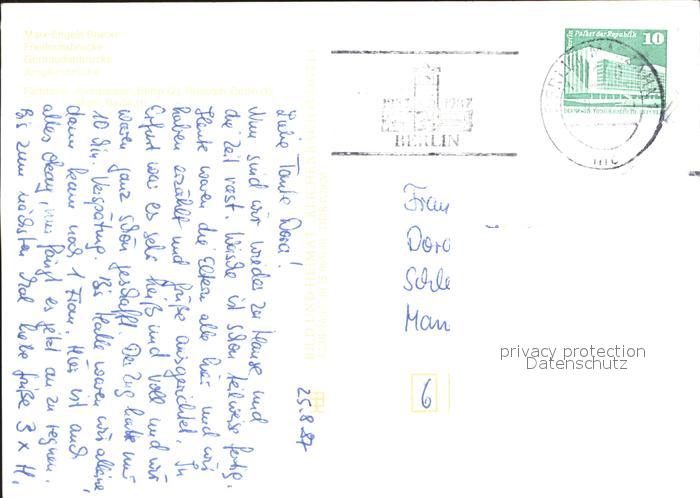 Marx-Engels-Brücke
Friedrichsbrücke
Gertraudenbrücke
Jungfernbrücke
25.8.87
Liebe Tante Dora!
Nun sind wir wieder zu Hause und
die Zeit rast. Wäsche ist schon teilweise fertig.
Heute waren die Eltern alle hier und wir
haben erzählt und Grüße ausgerichtet. In
Erfurt war es sehr heiß und voll und wir
waren ganz schön geschafft. Der Zug hatte nur
10 Min. Verspätung. Bis Halle waren wir alleine
dann kam noch 1 Frau. Hier ist auch
alles Okay, nur fängt es jetzt an zu regnen.
Bis zum nächsten Mal liebe Grüße 3 x H.
1237 1987
BERLIN
Berlin Palast der Republik
10
Frau
Dora
Schle
Man
6
privacy protection
Datenschutz